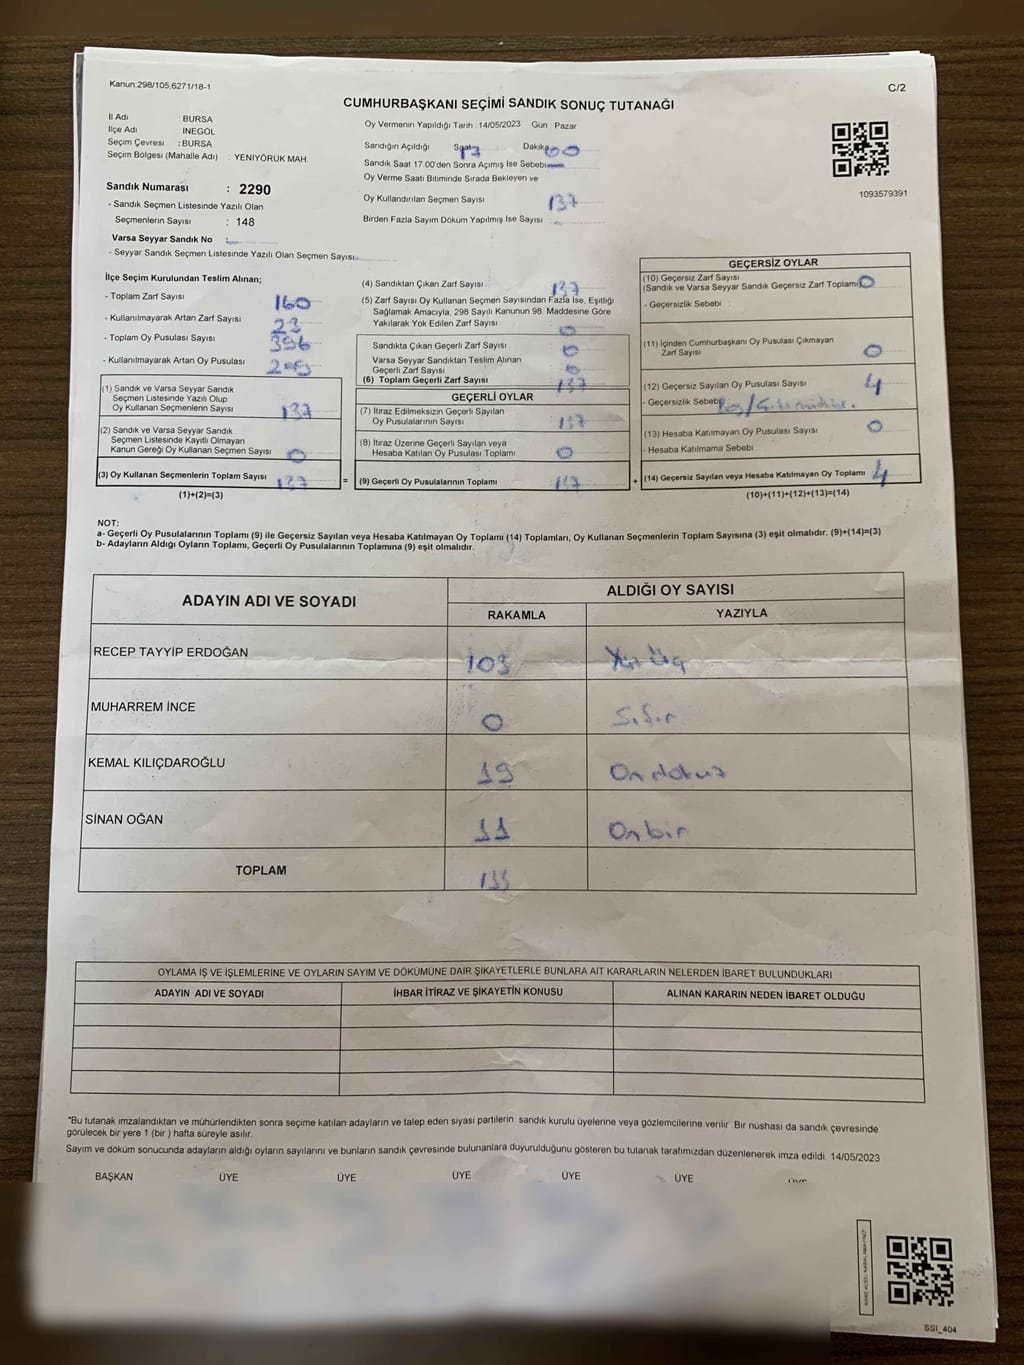 Kanun.298/105,6271/18-1
C/2
CUMHURBAŞKANI SEÇİMİ SANDIK SONUÇ TUTANAĞI
İl Adı : BURSA
İlçe Adı : İNEGÖL
Seçim Çevresi : BURSA
Seçim Bölgesi (Mahalle Adı) : YENİYÖRÜK MAH.
Oy Vermenin Yapıldığı Tarih : 14/05/2023 Gün : Pazar
Sandığın Açıldığı Saat 17 Dakika 00
Sandık Saat 17.00'den Sonra Açımış İse Sebebi
Oy Verme Saati Bitiminde Sırada Bekleyen ve
Oy Kullandırılan Seçmen Sayısı 137
Birden Fazla Sayım Döküm Yapılmış İse Sayısı
1093579391
Sandık Numarası : 2290
- Sandık Seçmen Listesinde Yazılı Olan
Seçmenlerin Sayısı : 148
Varsa Seyyar Sandık No :
- Seyyar Sandık Seçmen Listesinde Yazılı Olan Seçmen Sayısı:
İlçe Seçim Kurulundan Teslim Alınan;
- Toplam Zarf Sayısı 160
- Kullanılmayarak Artan Zarf Sayısı 23
- Toplam Oy Pusulası Sayısı 396
- Kullanılmayarak Artan Oy Pusulası
(1) Sandık ve Varsa Seyyar Sandık
Seçmen Listesinde Yazılı Olup
Oy Kullanan Seçmenlerin Sayısı 137
(2) Sandık ve Varsa Seyyar Sandık
Seçmen Listesinde Kayıtlı Olmayan
Kanun Gereği Oy Kullanan Seçmen Sayısı 0
(3) Oy Kullanan Seçmenlerin Toplam Sayısı 137
(1)+(2)=(3)
(4) Sandıktan Çıkan Zarf Sayısı 137
(5) Zarf Sayısı Oy Kullanan Seçmen Sayısından Fazla İse, Eşitliği
Sağlamak Amacıyla; 298 Sayılı Kanunun 98. Maddesine Göre
Yakılarak Yok Edilen Zarf Sayısı 0
Sandıkta Çıkan Geçerli Zarf Sayısı 0
Varsa Seyyar Sandıktan Teslim Alınan
Geçerli Zarf Sayısı 0
(6) Toplam Geçerli Zarf Sayısı 137
GEÇERLİ OYLAR
(7) İtiraz Edilmeksizin Geçerli Sayılan
Oy Pusulalarının Sayısı
(8) İtiraz Üzerine Geçerli Sayılan veya
Hesaba Katılan Oy Pusulası Toplamı 0
= (9) Geçerli Oy Pusulalarının Toplamı
GEÇERSİZ OYLAR
(10) Geçersiz Zarf Sayısı
(Sandık ve Varsa Seyyar Sandık Geçersiz Zarf Toplamı) 0
- Geçersizlik Sebebi :
(11) İçinden Cumhurbaşkanı Oy Pusulası Çıkmayan
Zarf Sayısı 0
(12) Geçersiz Sayılan Oy Pusulası Sayısı 4
- Geçersizlik Sebebi
(13) Hesaba Katılmayan Oy Pusulası Sayısı 0
- Hesaba Katılmama Sebebi
+ (14) Geçersiz Sayılan veya Hesaba Katılmayan Oy Toplamı 4
(10)+(11)+(12)+(13)=(14)
NOT:
a- Geçerli Oy Pusulalarının Toplamı (9) ile Geçersiz Sayılan veya Hesaba Katılmayan Oy Toplamı (14) Toplamları, Oy Kullanan Seçmenlerin Toplam Sayısına (3) eşit olmalıdır. (9)+(14)=(3)
b- Adayların Aldığı Oyların Toplamı, Geçerli Oy Pusulalarının Toplamına (9) eşit olmalıdır.
ADAYIN ADI VE SOYADI
ALDIĞI OY SAYISI
RAKAMLA
YAZIYLA
RECEP TAYYİP ERDOĞAN 103 Yüz Üç
MUHARREM İNCE 0 Sıfır
KEMAL KILIÇDAROĞLU 19 On dokuz
SİNAN OĞAN 11 On bir
TOPLAM 133
OYLAMA İŞ VE İŞLEMLERİNE VE OYLARIN SAYIM VE DÖKÜMÜNE DAİR ŞİKAYETLERLE BUNLARA AİT KARARLARIN NELERDEN İBARET BULUNDUKLARI
ADAYIN ADI VE SOYADI
İHBAR İTİRAZ VE ŞİKAYETİN KONUSU
ALINAN KARARIN NEDEN İBARET OLDUĞU
*Bu tutanak imzalandıktan ve mühürlendikten sonra seçime katılan adayların ve talep eden siyasi partilerin sandık kurulu üyelerine veya gözlemcilerine verilir. Bir nüshası da sandık çevresinde
görülecek bir yere 1 (bir) hafta süreyle asılır.
Sayım ve döküm sonucunda adayların aldığı oyların sayılarını ve bunların sandık çevresinde bulunanlara duyurulduğunu gösteren bu tutanak tarafımızdan düzenlenerek imza edildi. 14/05/2023
BAŞKAN ÜYE ÜYE ÜYE ÜYE ÜYE ÜYE
SSI_404